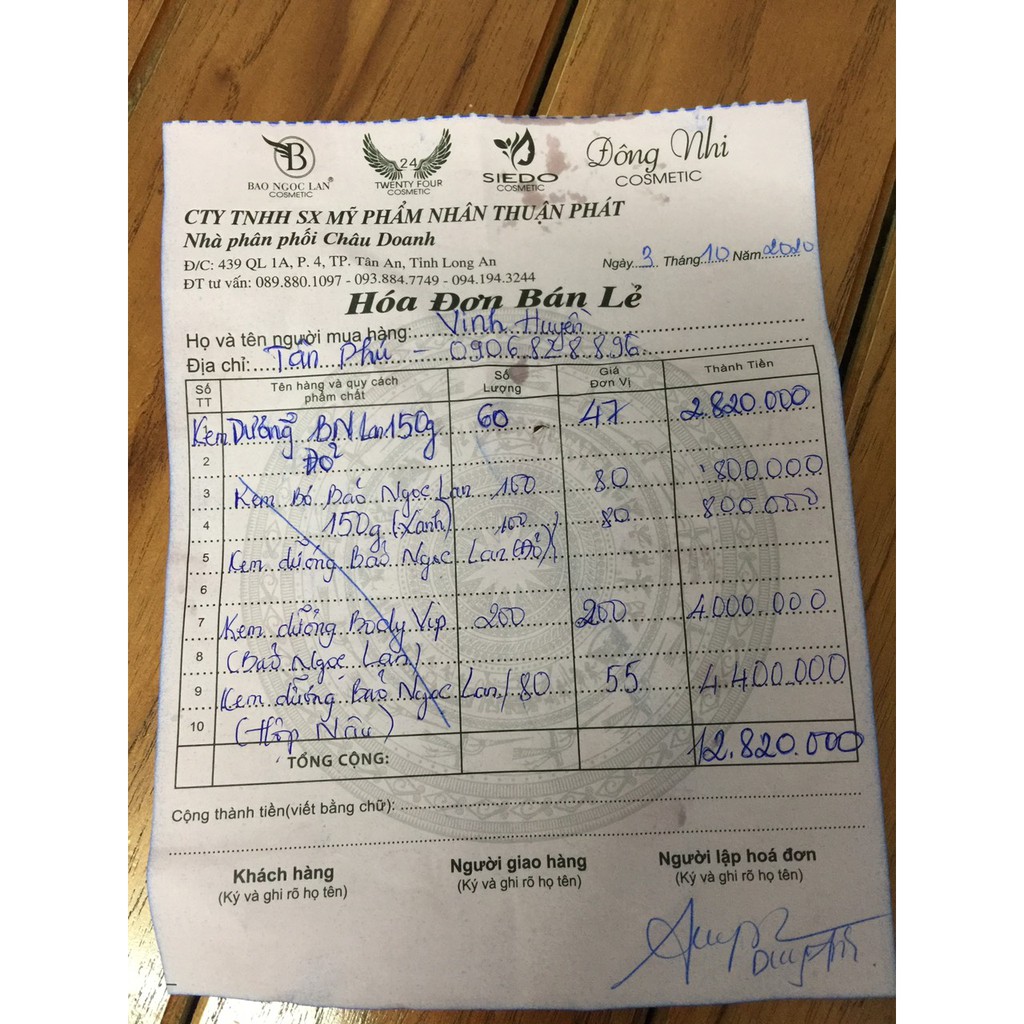 B
BAO NGOC LAN®
COSMETIC
24
TWENTY FOUR
COSMETIC
SIEDO
COSMETIC
Đông Nhi
COSMETIC
CTY TNHH SX MỸ PHẨM NHÂN THUẬN PHÁT
Nhà phân phối Châu Doanh
Đ/C: 439 QL 1A, P. 4, TP. Tân An, Tỉnh Long An
Ngày 3 Tháng 10 Năm 2020
ĐT tư vấn: 089.880.1097 - 093.884.7749 - 094.194.3244
Hóa Đơn Bán Lẻ
Họ và tên người mua hàng: Vinh Huyền
Địa chỉ: Tân Phú - 0906.828.896
Số TT Tên hàng và quy cách phẩm chất Số Lượng Giá Đơn Vị Thành Tiền
Kem Dưỡng BN Lan 150g 60 47 2.820.000
2 Đỏ
3 Kem Bảo Ngọc Lan 80 800.000
4 150g (Xanh) 80 800.000
5 Kem dưỡng Bảo Ngọc Lan (Đỏ)
6
7 Kem dưỡng Body Vip 200 200 4000.000
8 (Bảo Ngọc Lan)
9 Kem dưỡng Bảo Ngọc Lan / 80 55 4.400.000
10 (Hộp Nâu)
TỔNG CỘNG: 12.820.000
Cộng thành tiền(viết bằng chữ):
Khách hàng Người giao hàng Người lập hoá đơn
(Ký và ghi rõ họ tên) (Ký và ghi rõ họ tên) (Ký và ghi rõ họ tên)